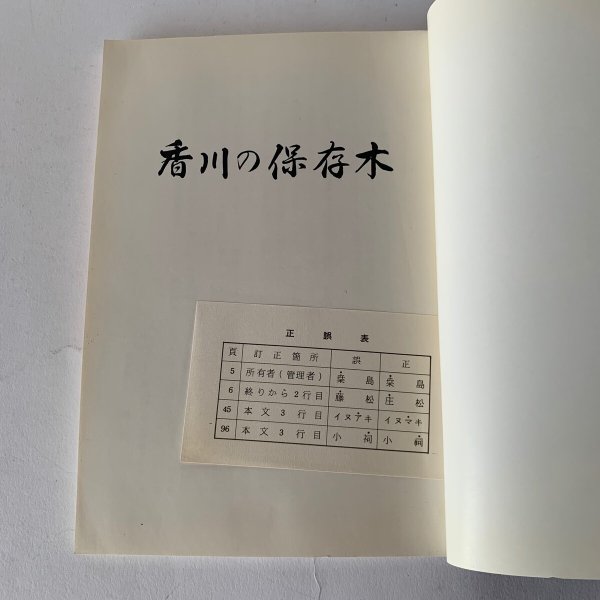 香川の保存木
正誤表
頁 訂正箇所 誤 正
5 所有者(管理者) 島 島
6 終りから2行目 藤松 庄松
45 本文3行目 イヌアキ イヌマキ
96 本文3行目 小 小祠